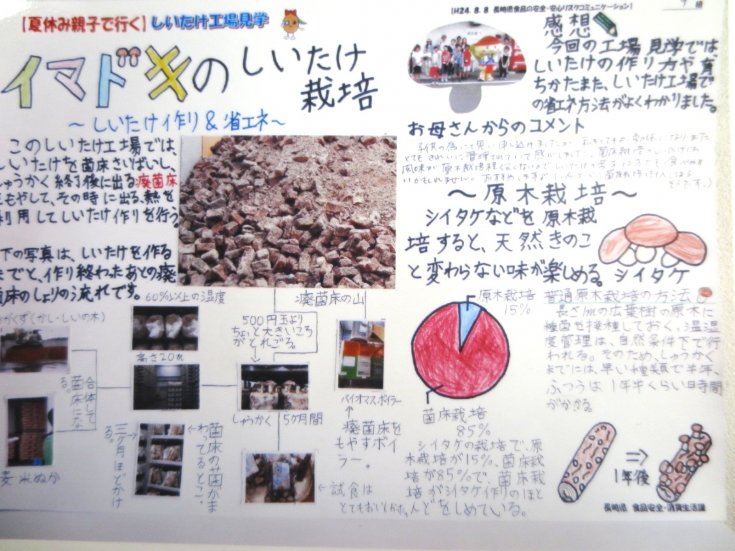 【夏休み親子で行く】しいたけ工場見学
イマドキのしいたけ
栽培
～しいたけ作り＆省エネ～
このしいたけ工場では
しいたけを菌床さいばいし、
しゅうかく終了後に出る廃菌床
をもやして、その時に出る熱を
利用してしいたけ作りを行う。
下の写真は、しいたけを作る
までと、作り終わったあとの廃
菌床のしょりの流れです。
60%以上の湿度
(かし・しいの木)
合体して
菌床にな
る。
米ぬか
高さ20cm
菌床のみ菌がま
わってるとこ。
三ヶ月ほどかけ
る。
500円玉より
ちょっと大きいころ
がとれごろ。
しゅうかく 5ヶ月間
←試食は
とてもおいしかった。
廃菌床の山
バイオマスボイラー
↑
廃菌床を
もやすボイ
ラー。
【H24.8.8 長崎県食品の安全・安心リスクコミュニケーション】
感想
今回の工場見学では
しいたけの作り方や育
ちかたまた、しいたけ工場で
の省エネ方法がよくわかりました。
お母さんからのコメント
～原木栽培～
シイタケなどを原木栽
培すると、天然きのこ
と変わらない味が楽しめる。
シイタケ
原木栽培
15%
菌床栽培
85%
シイタケの栽培で、原
木栽培が15%、菌床栽
培が85%で、菌床栽
培がシイタケ作りのほと
んどをしめている。
普通原木栽培の方法
長さ1mの広葉樹の原木に
種菌を接種しておく。温湿
度管理は、自然条件下で行
われる。そのため、しゅうかく
までには、早い種類で半年、
ふつうは1年半くらい日時間
がかかる。
⇒
1年後
長崎県 食品安全・消費生活課